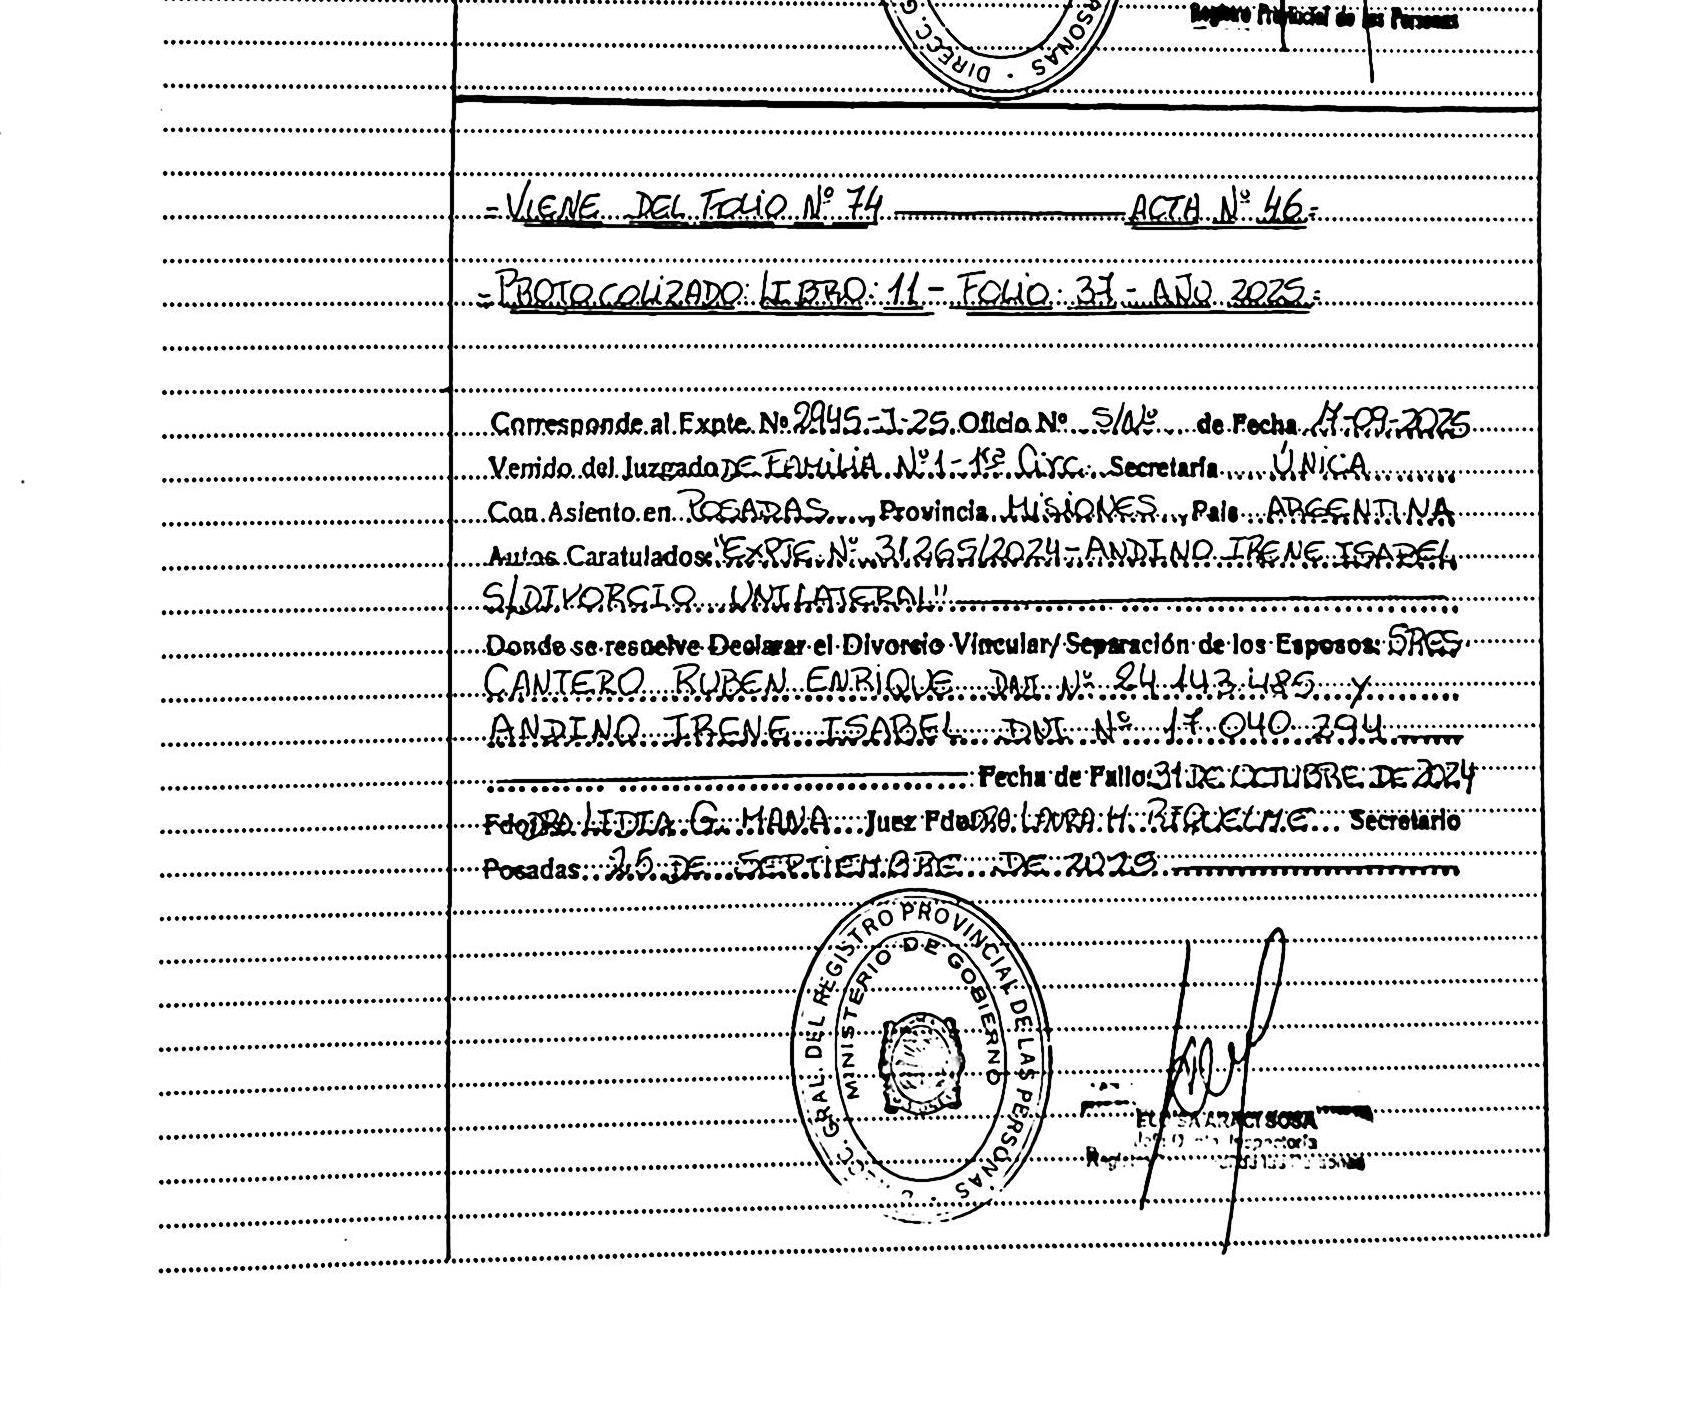 DIRECC. G
RSONAS
Registro Provincial de las Personas
=VIENE DEL FOLIO Nº 74 ACTA Nº 46=
=PROTOCOLIZADO: LIBRO: 11 - FOLIO: 37 - AÑO 2025=
Corresponde al Expte. Nº 2945-J-25 Oficio Nº S/Nº de Fecha 17-09-2025
Venido del Juzgado DE FAMILIA Nº1-1ra Circ. Secretaría ÚNICA
Con Asiento en POSADAS, Provincia MISIONES, País ARGENTINA
Autos Caratulados: "EXPTE Nº 31265/2024-ANDINO IRENE ISABEL
S/DIVORCIO UNILATERAL"
Donde se resuelve Declarar el Divorcio Vincular/ Separación de los Esposos: SRES
CANTERO RUBEN ENRIQUE DNI Nº 24.143.485 y
ANDINO IRENE ISABEL DNI Nº 17.040.294
Fecha de Fallo: 31 DE OCTUBRE DE 2024
Fdo. DRA LIDIA G. MANA Juez Fdo. DRA. LAURA H. RIQUELME Secretario
Posadas: 25 DE SEPTIEMBRE DE 2025
CC. GRAL. DEL REGISTRO PROVINCIAL DE LAS PERSONAS
MINISTERIO DE GOBIERNO
ARACI SOSA
Inspectoría